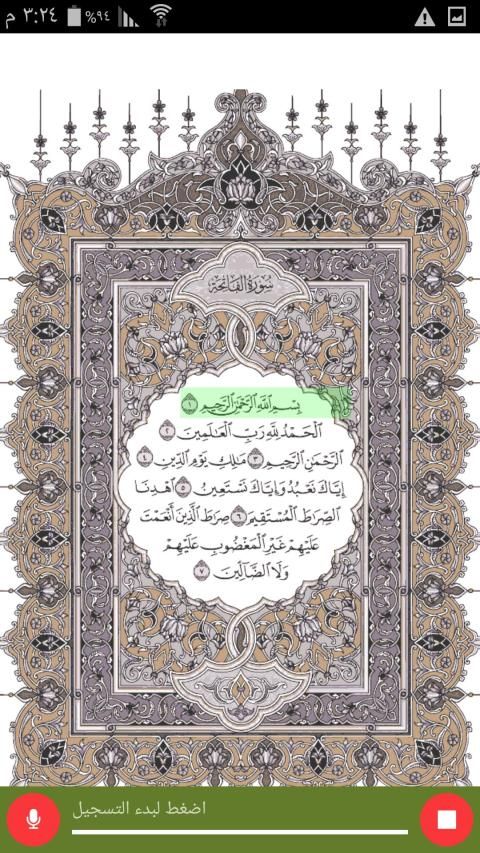 م ٣:٢٤ %٩٤
سُورَةُ الفَاتِحَةِ
بِسْمِ اللَّهِ الرَّحْمَٰنِ الرَّحِيمِ ١
الْحَمْدُ لِلَّهِ رَبِّ الْعَالَمِينَ ٢
الرَّحْمَٰنِ الرَّحِيمِ ٣ مَالِكِ يَوْمِ الدِّينِ ٤
إِيَّاكَ نَعْبُدُ وَإِيَّاكَ نَسْتَعِينُ ٥ اهْدِنَا
الصِّرَاطَ الْمُسْتَقِيمَ ٦ صِرَاطَ الَّذِينَ أَنْعَمْتَ
عَلَيْهِمْ غَيْرِ الْمَغْضُوبِ عَلَيْهِمْ
وَلَا الضَّالِّينَ ٧
اضغط لبدء التسجيل